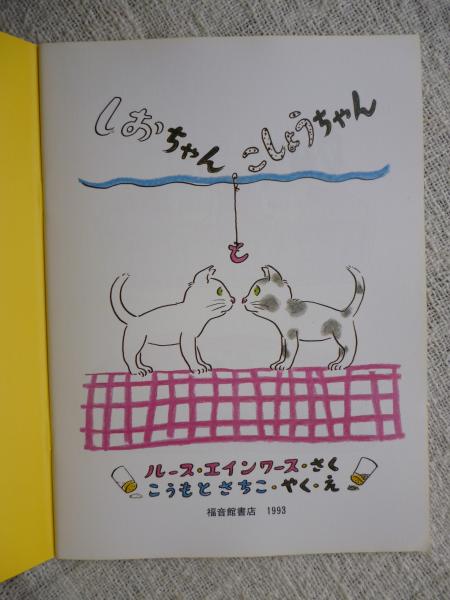 しおちゃん こしょうちゃん
と
ルース・エインワース・さく
こうもと さちこ・やく・え
福音館書店 1993